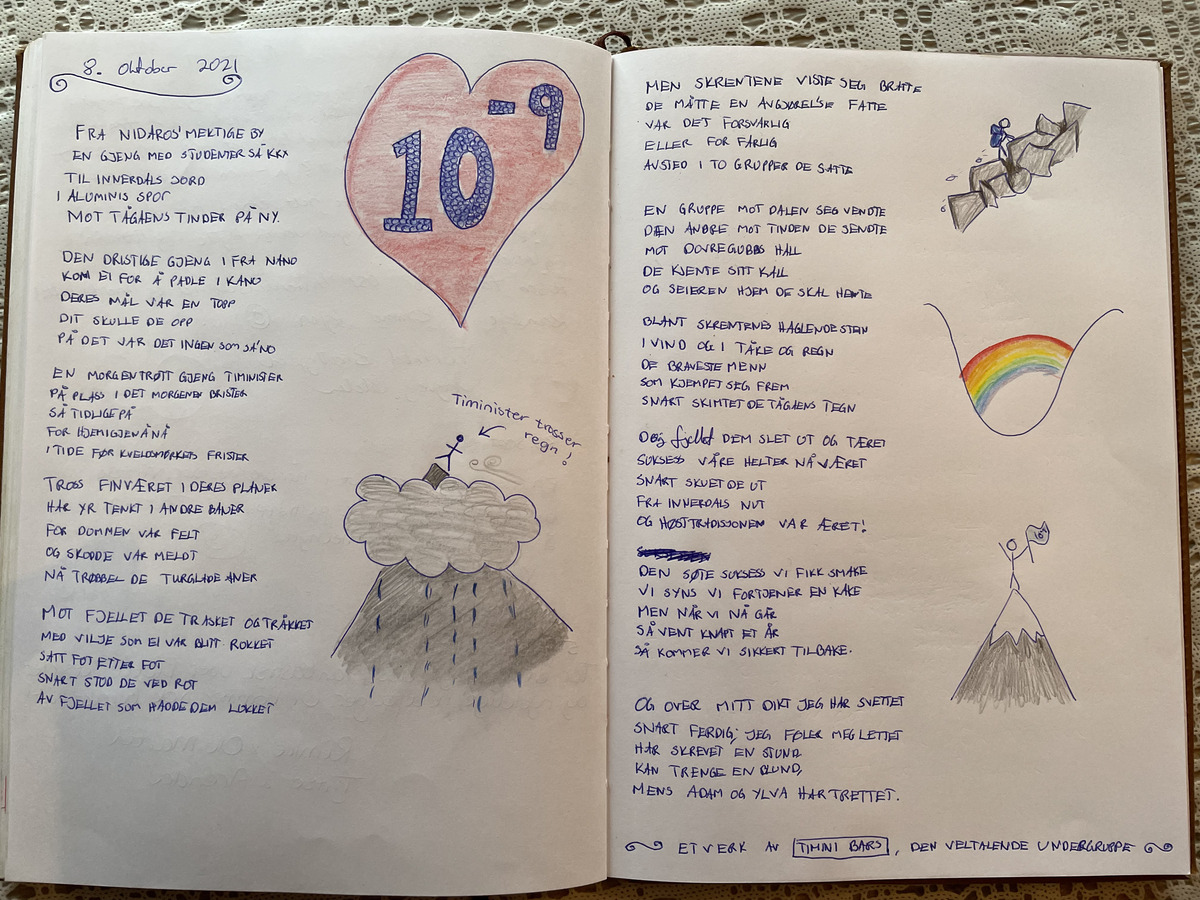 8. Oktober 2021
FRA NIDAROS' MEKTIGE BY
EN GJENG MED STUDENTER SÅ KRY
TIL INNERDALS JORD
I ALUMINIS SPOR
MOT TÅGAENS TINDER PÅ NY.
DEN DRISTIGE GJENG I FRA NANO
KOM EI FOR Å PADLE I KANO
DERES MÅL VAR EN TOPP
DIT SKULLE DE OPP
PÅ DET VAR DET INGEN SOM SA NO
EN MORGENTRØTT GJENG TIMINISTER
PÅ PLASS I DET MORGENEN BRISTER
SÅ TIDLIGE PÅ
FOR HJEM IGJEN Å NÅ
I TIDE FØR KVELDSMØRKETS FRISTER
TROSS FINVÆRET I DERES PLANER
HAR YR TENKT I ANDRE BANER
FOR DOMMEN VAR FELT
OG SKODDE VAR MELDT
NÅ TRØBBEL DE TURGLADE ANER
MOT FJELLET DE TRASKET OG TRÅKKET
MED VILJE SOM EI VAR BLITT ROKKET
SATT FOT ETTER FOT
SNART STOD DE VED ROT
AV FJELLET SOM HADDE DEM LOKKET
10⁻⁹
Timinister trosser
regn!
MEN SKRENTENE VISTE SEG BRATTE
DE MÅTTE EN AVGJØRELSE FATTE
VAR DET FORSVARLIG
ELLER FOR FARLIG
AVSTED I TO GRUPPER DE SATTE
EN GRUPPE MOT DALEN SEG VENDTE
DEN ANDRE MOT TINDEN DE SENDTE
MOT DOVREGUBBS HALL
DE KJENTE SITT KALL
OG SEIEREN HJEM DE SKAL HENTE
BLANT SKRENTENES HAGLENDE STEIN
I VIND OG I TÅKE OG REGN
DE BRAVESTE MENN
SOM KJEMPET SEG FREM
SNART SKIMTET DE TÅGAENS TEGN
Dog fjellet DEM SLET UT OG TÆRET
SUKSESS VÅRE HELTER NÅ VÆRET
SNART SKUET DE UT
FRA INNERDALS NUT
OG HØSTTRADISJONEN VAR ÆRET!
DEN SØTE SUKSESS VI FIKK SMAKE
VI SYNS VI FORTJENER EN KAKE
MEN NÅR VI NÅ GÅR
SÅ VENT KNAPT ET ÅR
SÅ KOMMER VI SIKKERT TILBAKE.
OG OVER MITT DIKT JEG HAR SVETTET
SNART FERDIG; JEG FØLER MEG LETTET
HAR SKREVET EN STUND
KAN TRENGE EN BLUND,
MENS ADAM OG YLVA HAR TRETTET.
ET VERK AV TIMINI BARS, DEN VELTALENDE UNDERGRUPPE